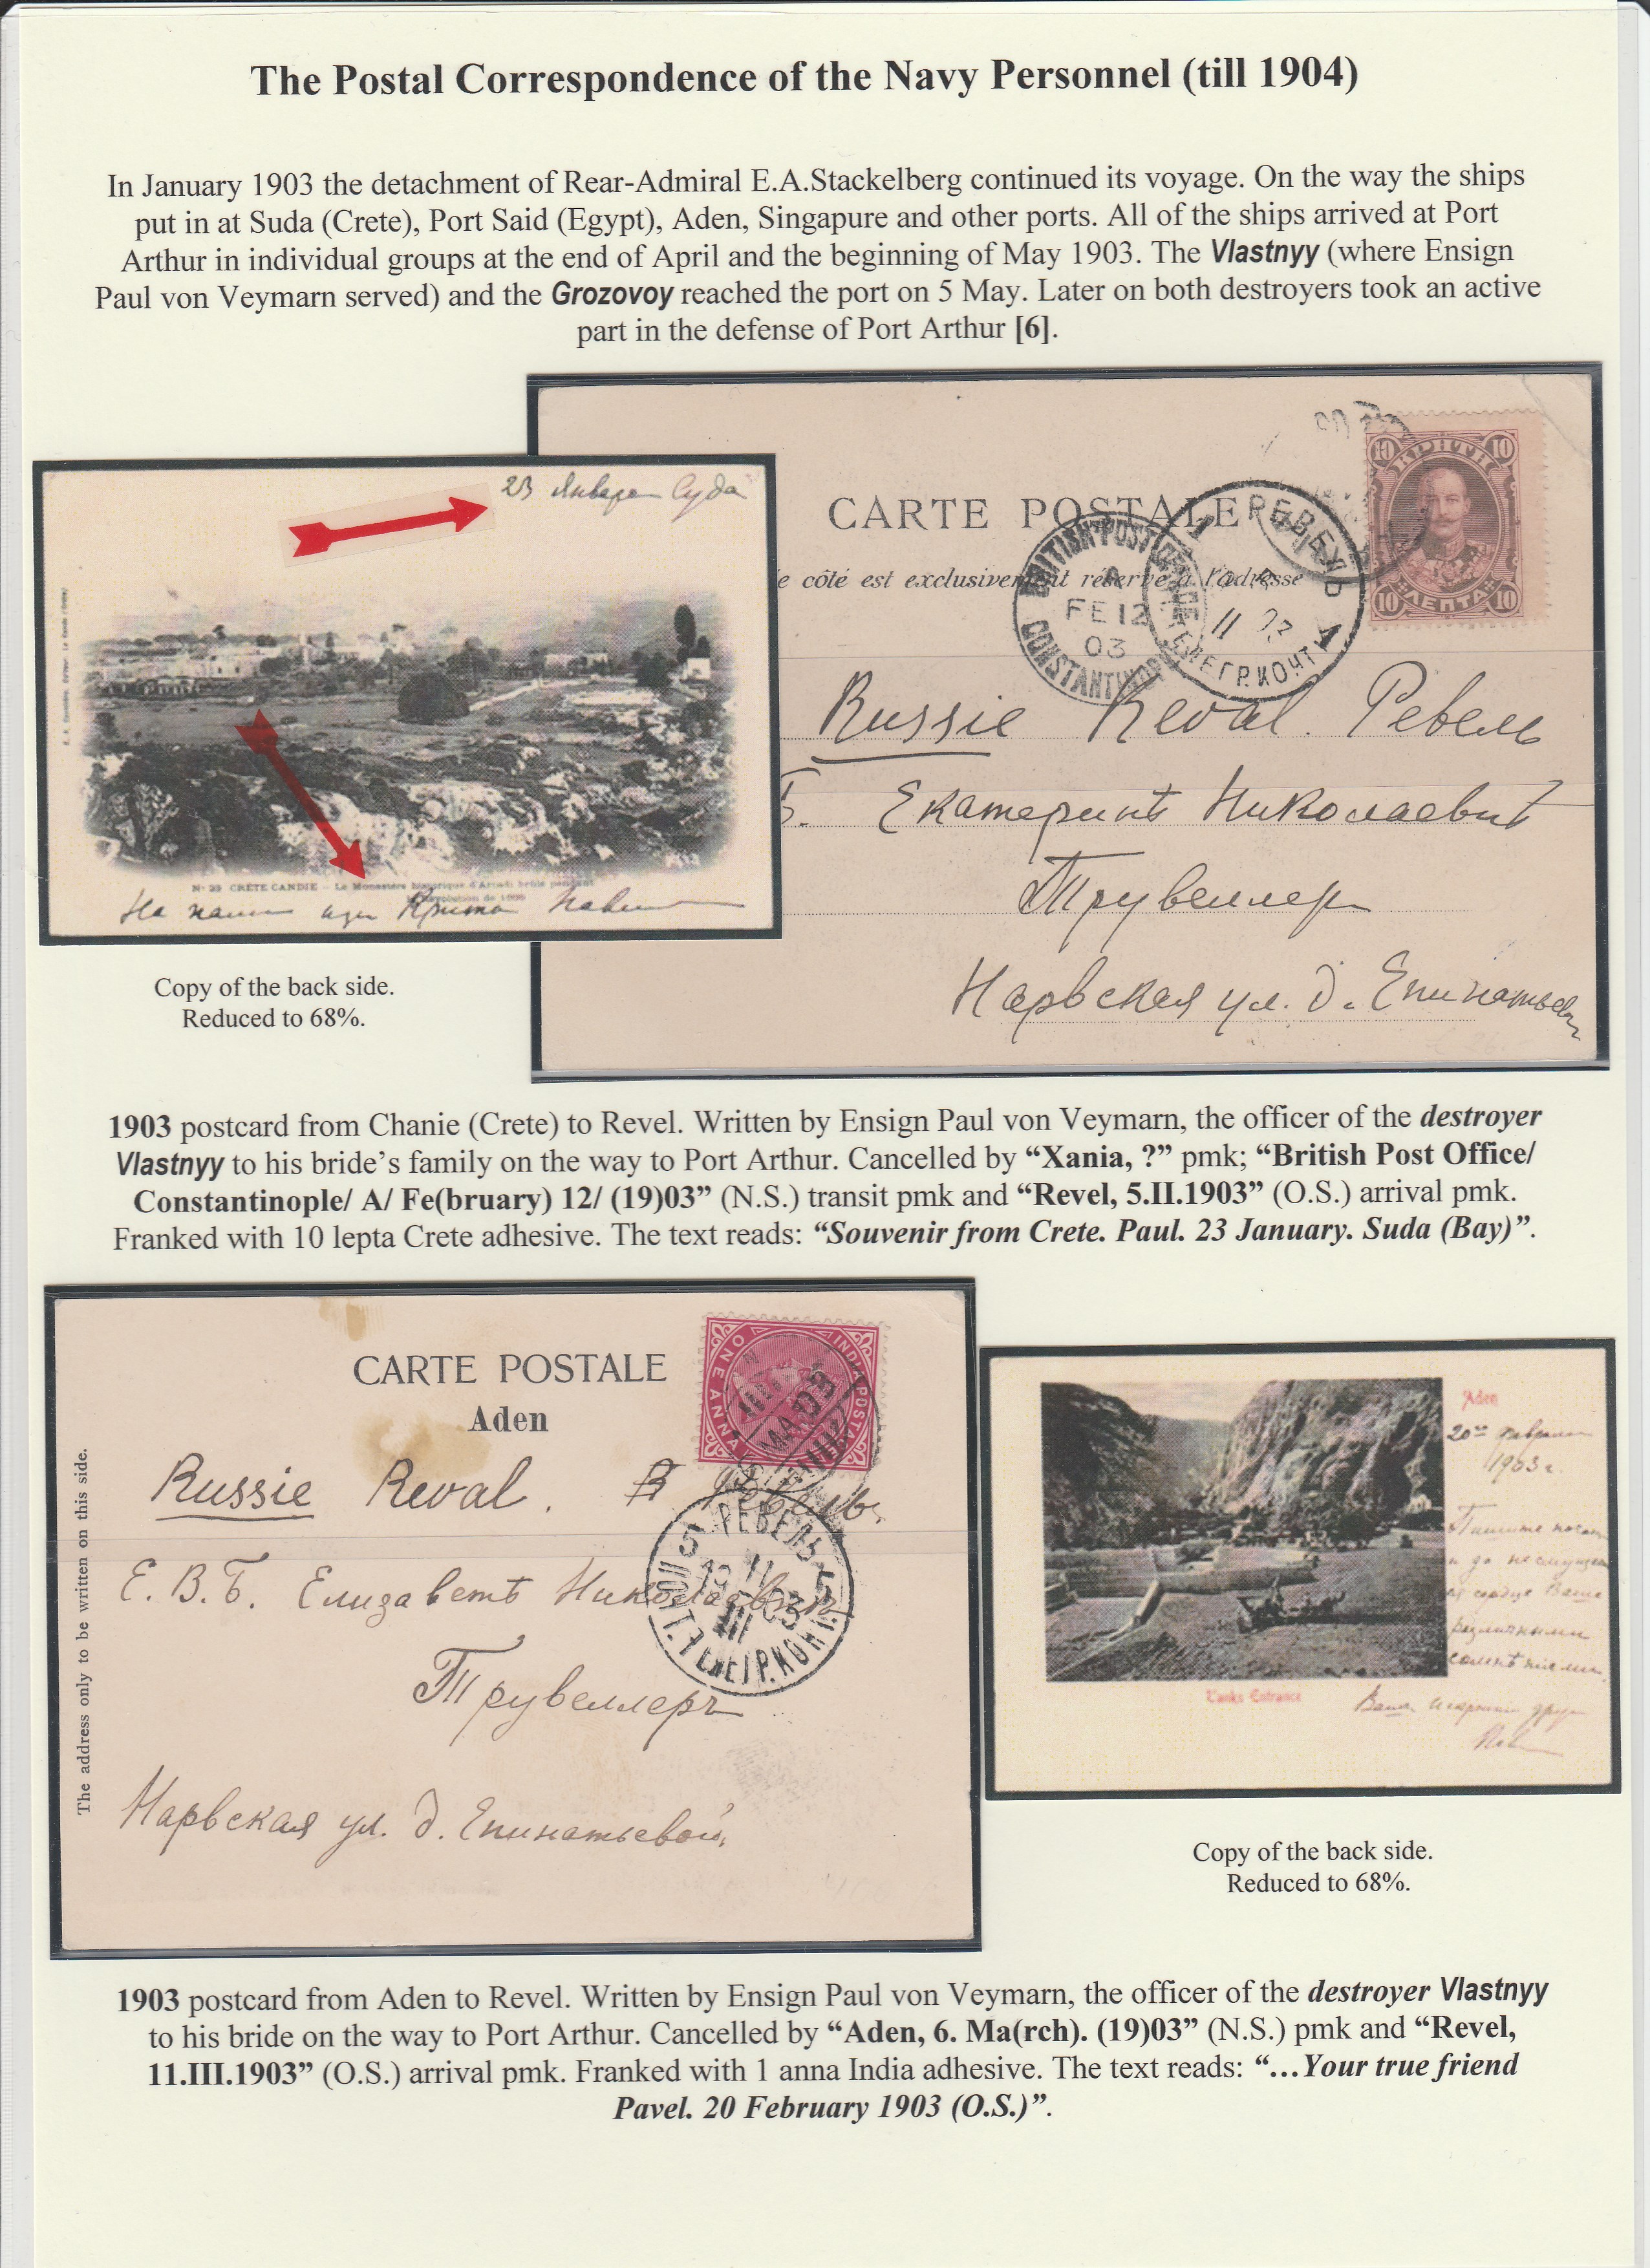 The Postal Correspondence of the Navy Personnel (till 1904)
In January 1903 the detachment of Rear-Admiral E.A.Stackelberg continued its voyage. On the way the ships
put in at Suda (Crete), Port Said (Egypt), Aden, Singapure and other ports. All of the ships arrived at Port
Arthur in individual groups at the end of April and the beginning of May 1903. The Vlastnyy (where Ensign
Paul von Veymarn served) and the Grozovoy reached the port on 5 May. Later on both destroyers took an active
part in the defense of Port Arthur [6].
23 Января Суда
Nº 23 CRÈTE CANDIE – Le Monastère historique d'Arcadi brûlé pendant
Révolution de
На Крита
CARTE POSTALE
e côté est exclusivement réservé à l'adresse
ΚΡΗΤΗ
10 10
10 ΛΕΠΤΑ 10
BRITISH POST OFFICE
A
FE 12
03
CONSTANTINOPLE
РЕВЕЛЬ
1 1
II 03
ТЕЛЕГР. КОНТ.
Russie Reval. Ревель
Б. Екатеринѣ Николаевнѣ
Трувеллер
Нарвская ул. д. Епинатьевой
Copy of the back side.
Reduced to 68%.
1903 postcard from Chanie (Crete) to Revel. Written by Ensign Paul von Veymarn, the officer of the destroyer
Vlastnyy to his bride’s family on the way to Port Arthur. Cancelled by “Xania, ?” pmk; “British Post Office/
Constantinople/ A/ Fe(bruary) 12/ (19)03” (N.S.) transit pmk and “Revel, 5.II.1903” (O.S.) arrival pmk.
Franked with 10 lepta Crete adhesive. The text reads: “Souvenir from Crete. Paul. 23 January. Suda (Bay)”.
CARTE POSTALE
Aden
The address only to be written on this side.
INDIA POSTAGE
ONE ANNA
Russie Reval. Ревель.
Е. В. Б. Елизаветѣ Николаевнѣ
Трувеллеръ
Нарвская ул. д. Епинатьевой.
5 РЕВЕЛЬ 5
11
19 03
III
ПОЧТ. ТЕЛЕГР. КОНТ.
Aden
20го февраля
1903 г.
Пишите
и да не смущ
ся сердце Ваше
различными
сомнѣніями.
Tanks Entrance
Ваш друг
Copy of the back side.
Reduced to 68%.
1903 postcard from Aden to Revel. Written by Ensign Paul von Veymarn, the officer of the destroyer Vlastnyy
to his bride on the way to Port Arthur. Cancelled by “Aden, 6. Ma(rch). (19)03” (N.S.) pmk and “Revel,
11.III.1903” (O.S.) arrival pmk. Franked with 1 anna India adhesive. The text reads: “…Your true friend
Pavel. 20 February 1903 (O.S.)”.